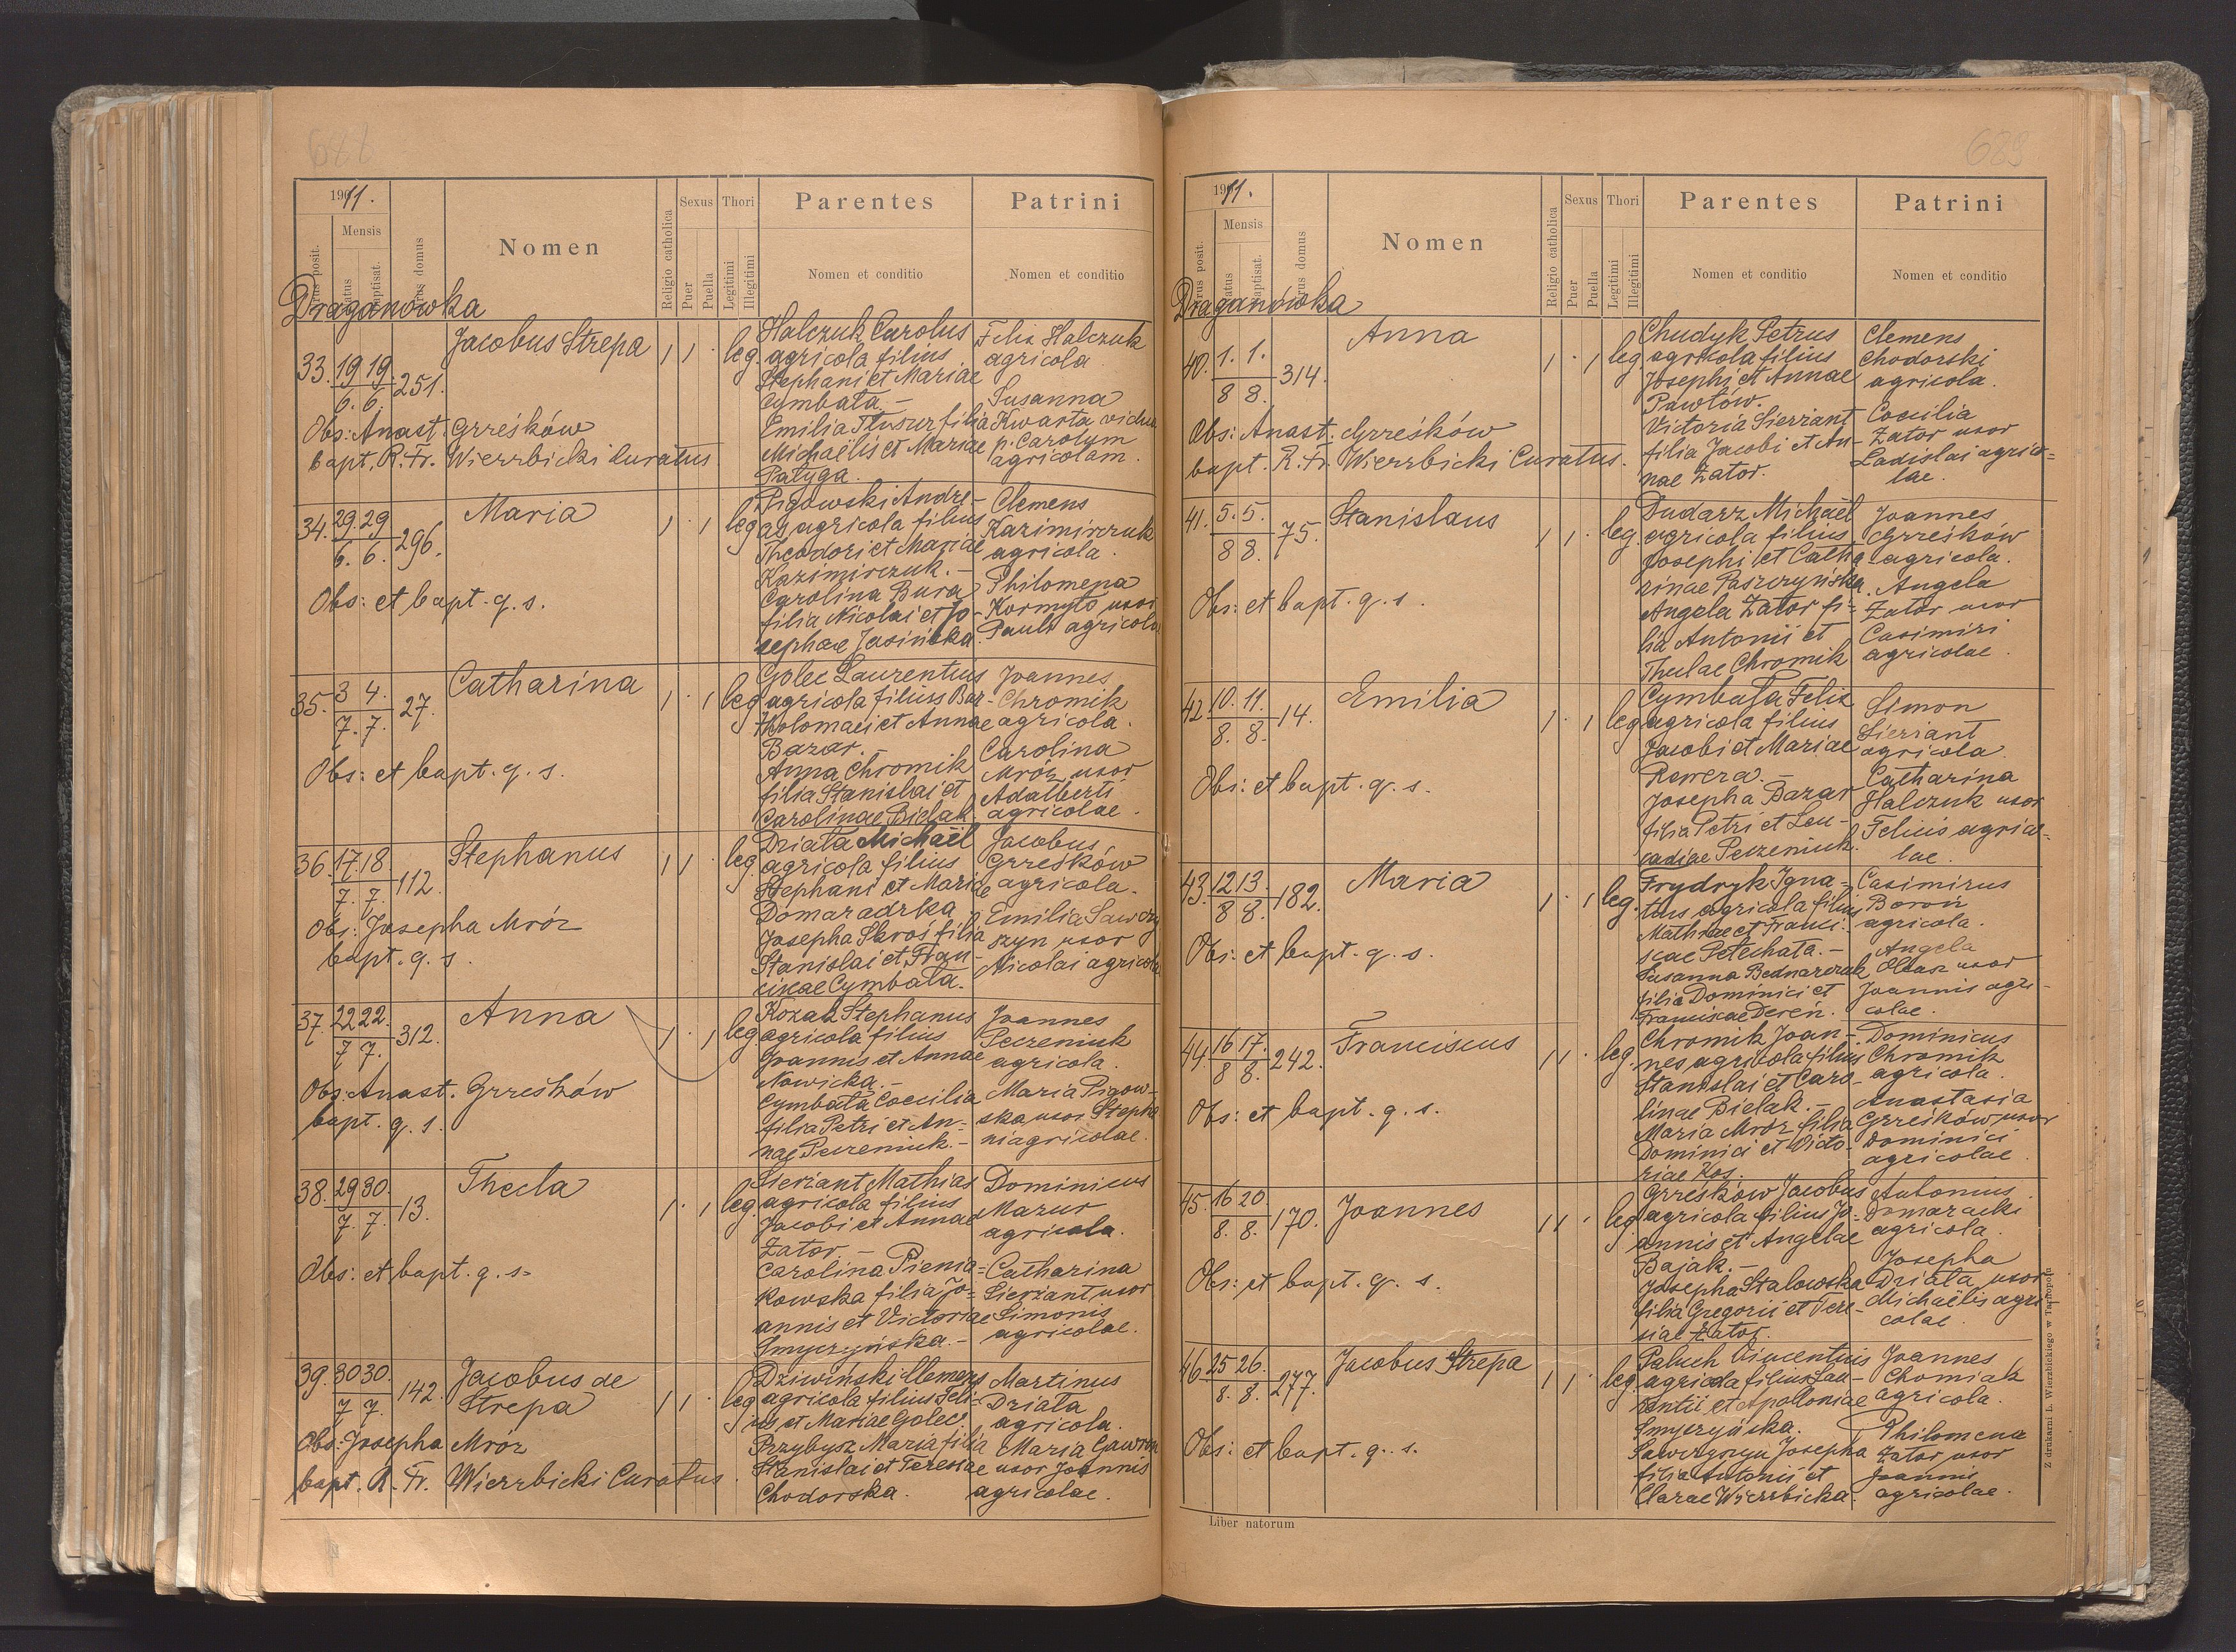 688
1911.
Nrus posit.
Mensis
Natus
Baptisat.
Nrus domus
Nomen
Religio catholica
Sexus
Puer
Puella
Thori
Legitimi
Illegitimi
Parentes
Nomen et conditio
Patrini
Nomen et conditio
Draganówka
33. 19 19 251. Jacobus Strepa 1 1 . leg.
6. 6.
Halczuk Carolus
agricola filius
Stephani et Mariae
Cymbała. -
Emilia Tłusur filia
Michaelis et Mariae
Pałyga.
Felix Halczuk
agricola
Susanna
Kwarta vidua
p. Carolum
agricolam.
Obs: Anast. Grześków
bapt. R. Fr. Wierzbicki Curatus
34. 29. 29 296. Maria 1 . 1 leg
6. 6.
Pigowski Andre-
as agricola filius
Theodori et Mariae
Kazimirczuk. -
Carolina Bura
filia Nicolai et Jo-
sephae Jasińska.
Clemens
Kazimirczuk
agricola.
Philomena
Kormyło uxor
Pauli agricolae
Obs: et bapt. q. s.
35. 3 4. 27. Catharina 1 . 1 leg
7. 7.
Golec Laurentius
agricola filius Bar-
tholomaei et Annae
Bazar. -
Anna Chromik
filia Stanislai et
Carolinae Bielak
Joannes
Chromik
agricola.
Carolina
Mróz uxor
Adalberti
agricolae.
Obs: et bapt. q. s.
36. 17. 18 112. Stephanus 1 1 . leg.
7. 7.
Dziata Michaël
agricola filius
Stephani et Mariae
Domaradzka
Josepha Skroś filia
Stanislai et Fran-
ciscae Cymbała.
Jacobus
Grześków
agricola.
Emilia Sawczy
szyn uxor
Nicolai agricolae
Obs: Josepha Mróz
bapt. q. s.
37. 22 22. 312. Anna 1 . 1 leg
7 7.
Kozak Stephanus
agricola filius
Joannis et Annae
Nowicka. -
Cymbała Coecilia
filia Petri et An-
nae Peczeniuk. -
Joannes
Peczeniuk
agricola.
Maria Pigow-
ska uxor Stepha
ni agricolae.
Obs: Anast. Grześków
bapt. q. s.
38. 29 30. 13. Thecla 1 . 1 leg.
7. 7.
Sierżant Mathias
agricola filius
Jacobi et Annae
Zator. -
Carolina Pienią-
kowska filia Jo-
annis et Victoriae
Smyczyńska. -
Dominicus
Mazur
agricola.
Catharina
Sierżant uxor
Simonis
agricolae.
Obs: et bapt. q. s.
39. 30 30. 142. Jacobus de
7 7. Strepa 1 1 . leg
Dziwiński Clemens
agricola filius Feli-
cis et Mariae Golec.
Przybysz Maria filia
Stanislai et Teresiae
Chodorska.
Martinus
Dziata
agricola.
Maria Gawron
uxor Joannis
agricolae.
Obs: Josepha Mróz
bapt. R. Fr. Wierzbicki Curatus.
689
1911.
Nrus posit.
Mensis
Natus
Baptisat.
Nrus domus
Nomen
Religio catholica
Sexus
Puer
Puella
Thori
Legitimi
Illegitimi
Parentes
Nomen et conditio
Patrini
Nomen et conditio
Draganówka
40. 1. 1. 314. Anna 1 . 1 leg
8 8.
Chudyk Petrus
agricola filius
Josephi et Annae
Pawłów.
Victoria Sierżant
filia Jacobi et An-
nae Zator.
Clemens
Chodorski
agricola.
Coecilia
Zator uxor
Ladislai agrico-
lae.
Obs: Anast. Grześków
bapt. R. Fr. Wierzbicki Curatus.
41. 5. 5. 75. Stanislaus 1 1 . leg.
8 8.
Dudarz Michaël
agricola filius
Josephi et Catha-
rinae Paszczyńska.
Angela Zator fi-
lia Antonii et
Theclae Chromik
Joannes
Grześków
agricola.
Angela
Zator uxor
Casimiri
agricolae.
Obs: et bapt. q. s.
42. 10. 11. 14. Emilia 1 . 1 leg
8. 8.
Cymbała Felix
agricola filius
Jacobi et Mariae
Rewera. -
Josepha Bazar
filia Petri et Leu-
cadiae Peczeniuk.
Simon
Sierżant
agricola
Catharina
Halczuk uxor
Felicis agrico-
lae.
Obs: et bapt. q. s.
43. 12 13. 182. Maria 1 . 1 leg.
8 8.
Frydryk Igna-
tius agricola filius
Mathiae et Franci-
scae Petechata. -
Susanna Bednarczuk
filia Dominici et
Franciscae Dereń.
Casimirus
Baron
agricola.
Angela
Olasz uxor
Joannis agri-
colae.
Obs: et bapt. q. s.
44. 16 17. 242. Franciscus 1 1 . leg.
8 8.
Chromik Joan-
nes agricola filius
Stanislai et Caro-
linae Bielak. -
Maria Mróz filia
Dominici et Victo-
riae Koś.
Dominicus
Chromik
agricola.
Anastasia
Grześków uxor
Dominici
agricolae
Obs: et bapt. q. s.
45. 16 20 170. Joannes 1 1 . leg
8. 8.
Grześków Jacobus
agricola filius Jo-
annis et Angelae
Bajak. -
Josepha Stalowska
filia Gregorii et Tere-
siae Zator.
Antonius
Domaracki
agricola
Josepha
Dziata uxor
Michaëlis agri-
colae
Obs: et bapt. q. s.
46. 25 26. 277. Jacobus Strepa 1 1 . leg.
8. 8.
Paluch Vincentius
agricola filius Lau-
rentii et Apolloniae
Smyczyńska.
Sawczyszyn Josepha
filia Antonii et
Clarae Wierzbicka.
Joannes
Chomiak
agricola.
Philomena
Zator uxor
Joannis
agricolae.
Obs: et bapt. q. s.
Liber natorum
Z drukarni L. Wierzbickiego w Tarnopolu